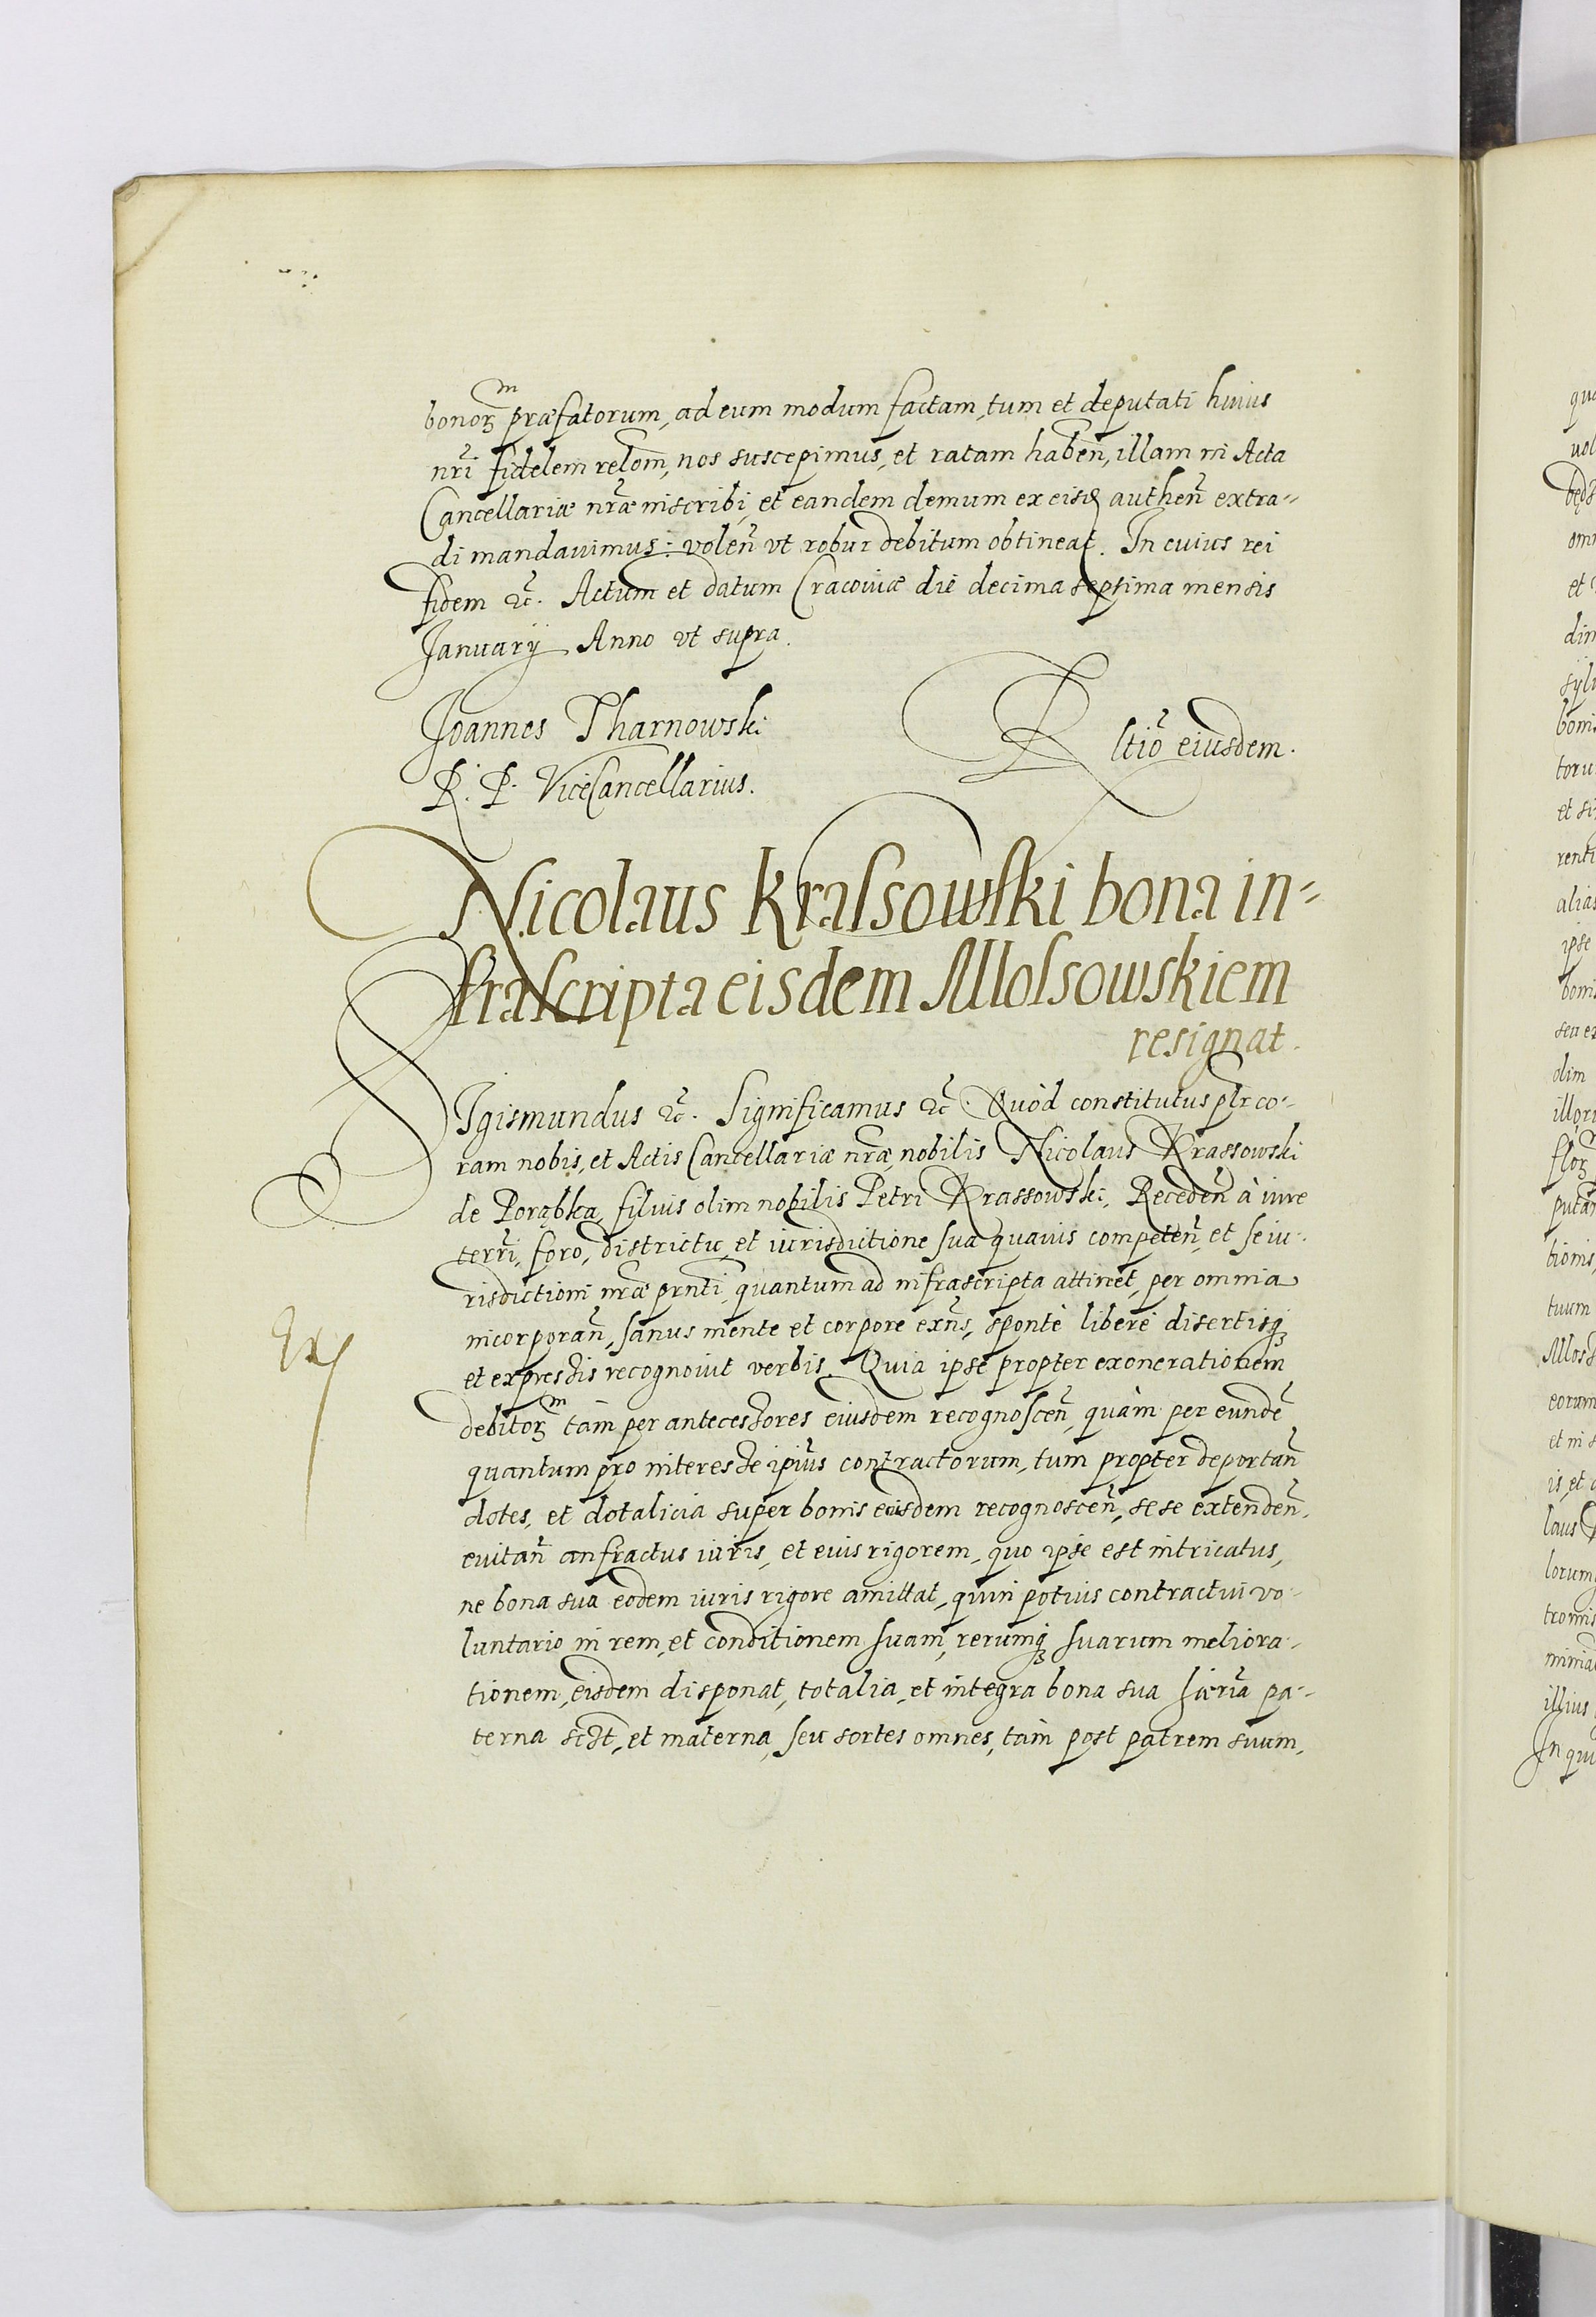 bonorꝫ præfatorum, ad eum modum factam, tum et deputati huius
nr̃i fidelem relom̃, nos suscepimus, et ratam habeñ, illam in Acta
Cancellariæ nr̃æ inscribi, et eandem demum ex eisd autheñ extra-
di mandauimus: voleñ vt robur debitum obtineat. In cuius rei
fidem ꝛc̃. Actum et datum Cracouiæ die decima septima mensis
Januarÿ Anno vt supra.
Joannes Tharnowski
R. P. ViceCancellarius.
Rltiõ eiusdem.
Nicolaus Krassowski bona in-
frascripta eisdem Mlossowskiem
resignat.
SIgismundus ꝛc̃. Significamus ꝛc̃. Quòd constitutus plr̃ co-
ram nobis, et Actis Cancellariæ nr̃æ, nobilis Nicolaus Krassowski
de Porąbka, filius olim nobilis Petri Krassowski, Recedeñ à iure
terr̃i, foro, districtu, et iurisdictione sua quauis competeñ, et se iu-
risdictioni nr̃æ prñti, quantum ad infrascripta attinet, per omnia
incorporañ, sanus mente et corpore exñs, spontè liberè disertisqꝫ
et expressis recognouit verbis. Quia ipse propter exonerationem
Ex
debitorꝫ tàm per antecessores eiusdem recognosceñ, quàm per eundẽ
quantum pro interesse ipiũs contractorum, tum propter deportañ
dotes, et dotalicia super bonis eiusdem recognosceñ, sese extendeñ,
euitañ anfractus iuris, et eius rigorem, quo ipse est intricatus,
ne bona sua eodem iuris rigore amittat, quin potius contractui vo-
luntario in rem, et conditionem suam, rerumqꝫ suarum meliora-
tionem, eisdem disponat, totalia, et integra bona sua hæria pa-
terna scʒt, et materna, seu sortes omnes, tàm post patrem suum,